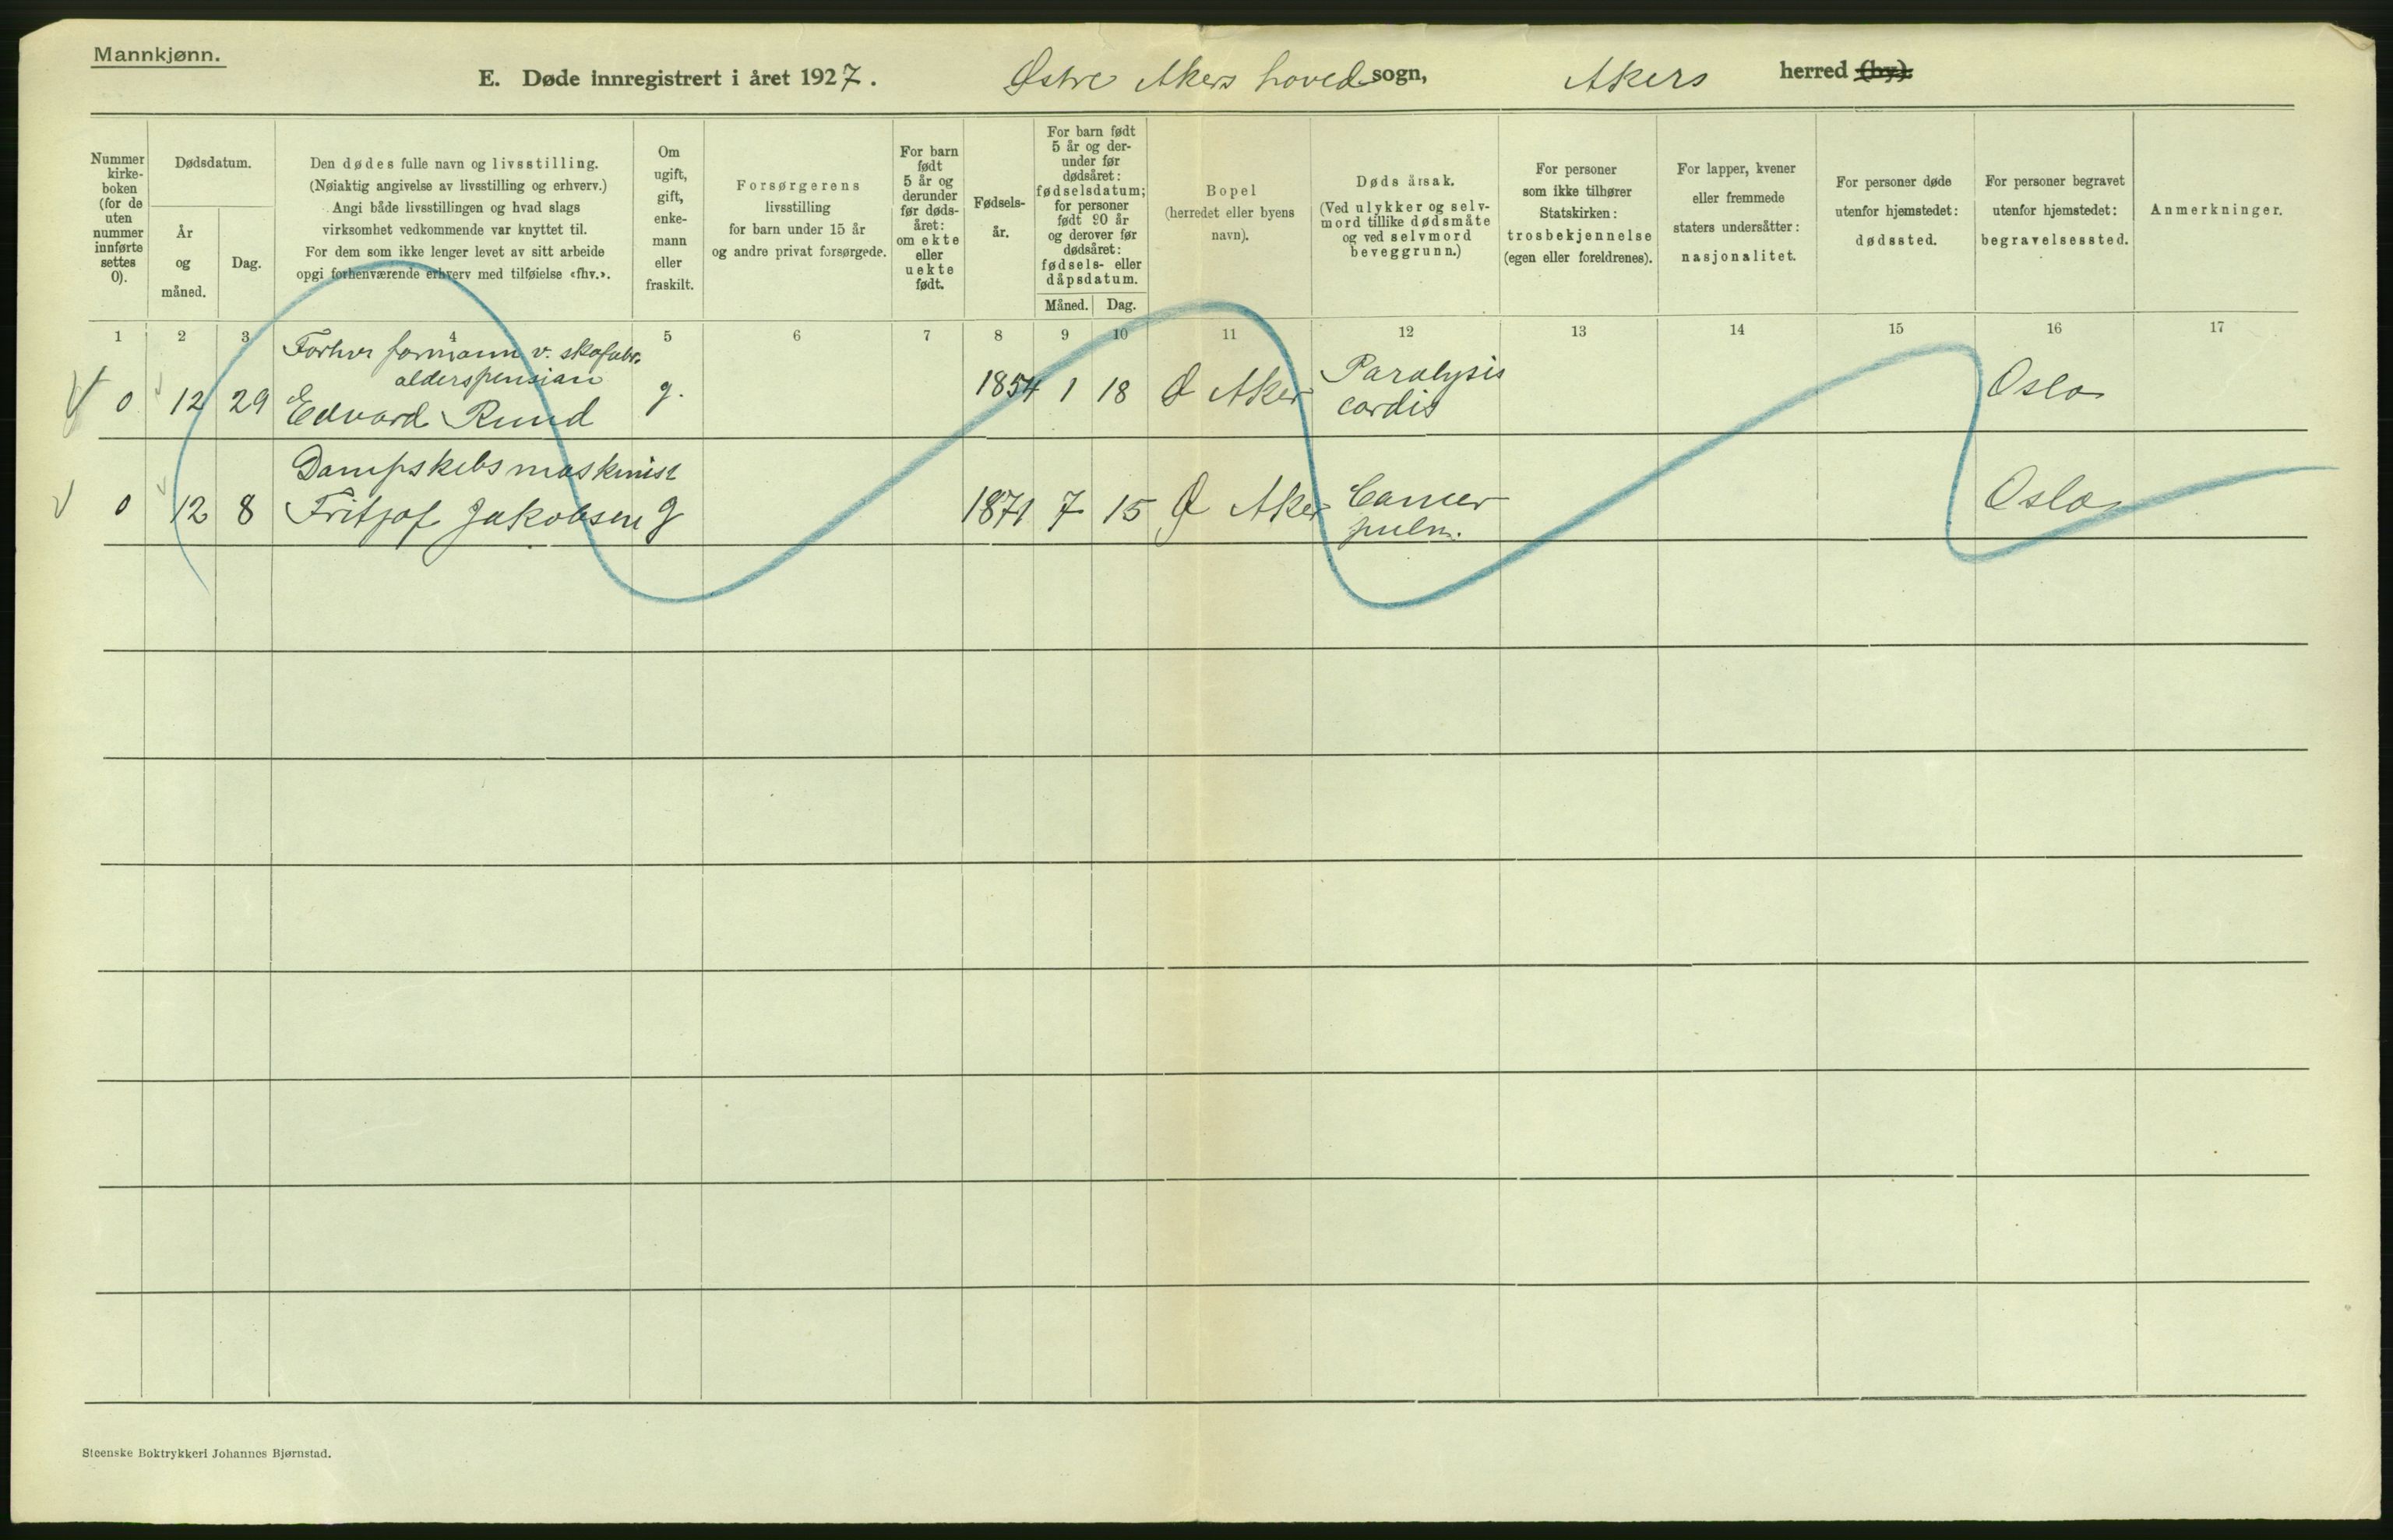 Mannkjønn.
E. Døde innregistrert i året 1927. Østre Akers hovedsogn, Akers herred (by).
Nummer
kirke-
boken
(for de
uten
nummer
innførte
settes
0).
Dødsdatum.
År
og
måned.
Dag.
Den dødes fulle navn og livsstilling.
(Nøiaktig angivelse av livsstilling og erhverv.)
Angi både livsstillingen og hvad slags
virksomhet vedkommende var knyttet til.
For dem som ikke lenger levet av sitt arbeide
opgi forhenværende erhverv med tilføielse «fhv.».
Om
ugift,
gift,
enke-
mann
eller
fraskilt.
Forsørgerens
livsstilling
for barn under 15 år
og andre privat forsørgede.
For barn
født
5 år og
derunder
før døds-
året:
om ekte
eller
uekte
født.
Fødsels-
år.
For barn født
5 år og der-
under før
dødsåret:
fødselsdatum;
for personer
født 90 år
og derover før
dødsåret:
fødsels- eller
dåpsdatum.
Måned. Dag.
Bopel
(herredet eller byens
navn).
Dødsårsak.
(Ved ulykker og selv-
mord tillike dødsmåte
og ved selvmord
beveggrunn.)
For personer
som ikke tilhører
Statskirken:
trosbekjennelse
(egen eller foreldrenes).
For lapper, kvener
eller fremmede
staters undersåtter:
nasjonalitet.
For personer døde
utenfor hjemstedet:
dødssted.
For personer begravet
utenfor hjemstedet:
begravelsessted.
Anmerkninger.
1 2 3 4 5 6 7 8 9 10 11 12 13 14 15 16 17
Forhv formann v. skofabr.
alderspension
0 12 29 Edvard Ruud g. 1854 1 18 Ø Aker Paralysis
cordis
Oslo
Dampskibsmaskinist
0 12 8 Fritjof Jakobsen g 1871 7 15 Ø Aker Cancer
pulm.
Oslo
Steenske Boktrykkeri Johannes Bjørnstad.